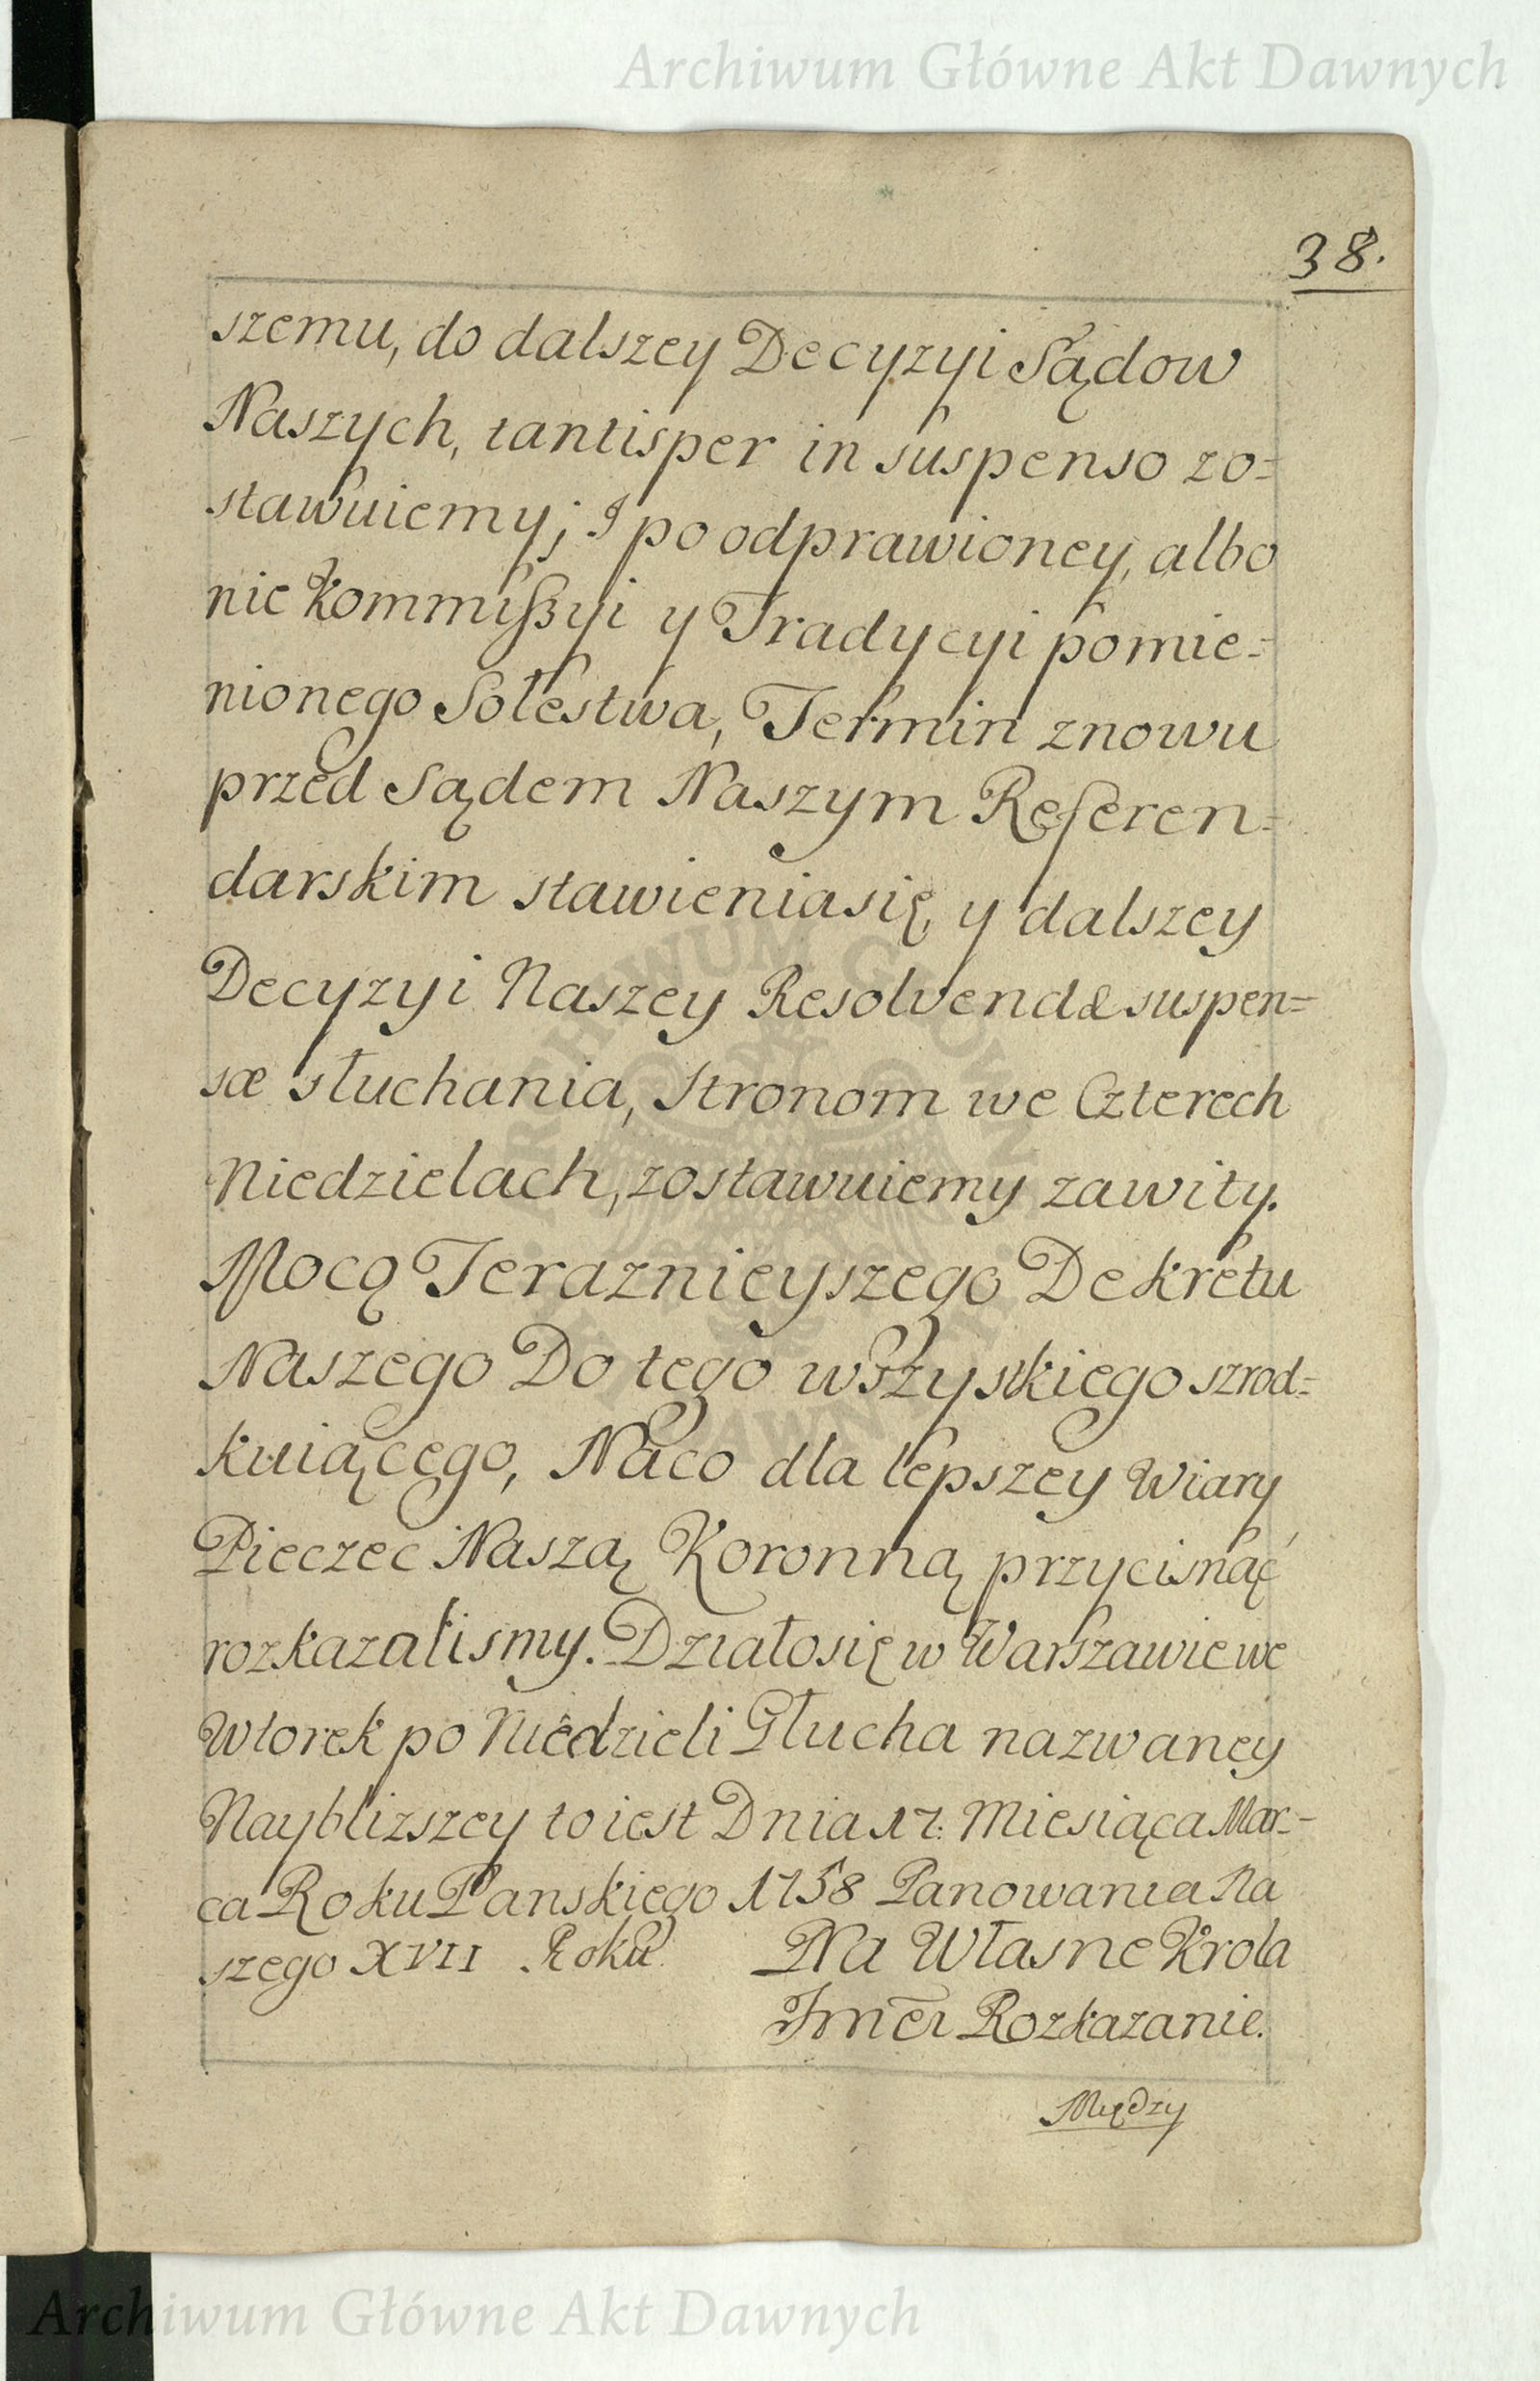 Archiwum Główne Akt Dawnych
38.
szemu, do dalszey Decyzyi Sądow
Naszych, tantisper in suspenso zo=
stawuiemy; I po odprawioney, albo
nie Kommissyi y Tradycyi pomie=
nionego Sołestwa, Termin znowu
przed Sądem Naszym Referen=
darskim stawienia się, y dalszey
Decyzyi Naszey Resolvendæ suspen=
sæ słuchania, Stronom we Czterech
Niedzielach, zostawuiemy zawity.
Mocą Teraznieyszego Dekretu
Naszego Do tego wszystkiego szrod=
kuiącego, Na co dla lepszey Wiary
Pieczec Naszą Koronną przycisnąć
rozkazalismy. Działo się w Warszawie we
Wtorek po Niedzieli Głucha nazwaney
Naybliższey to iest Dnia 17: Miesiąca Mar=
ca Roku Panskiego 1758 Panowania Na
szego XVII Roku.
Na Własne Krola
Jmći Rozkazanie.
Między
Archiwum Główne Akt Dawnych